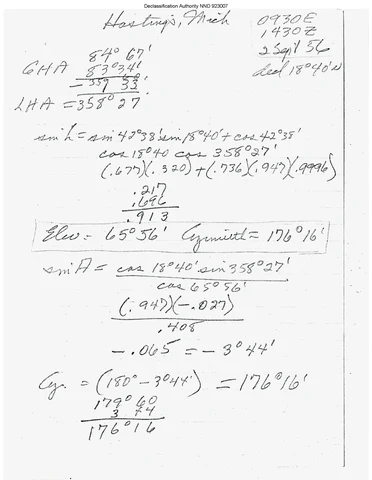 Declassification Authority NND 923007
Hastings, Mich
0930E
1430Z
2 Sept 56
decl 18°40'N
84° 67'
GHA 83° 34'
LHA = 358° 27'
sin h = sin 42°38' sin 18°40' + cos 42°38'
cos 18°40 cos 358°27'
(.677)(.320) + (.736)(.947)(.9996)
.217
.696
.913
Elev = 65°56' Azimuth = 176°16'
sin A = cos 18°40' sin 358°27'
cos 65°56'
(.947)(-.027)
.408
-.065 = -3°44'
Az. = (180° - 3°44') = 176°16'
179° 60
3 44
176° 16